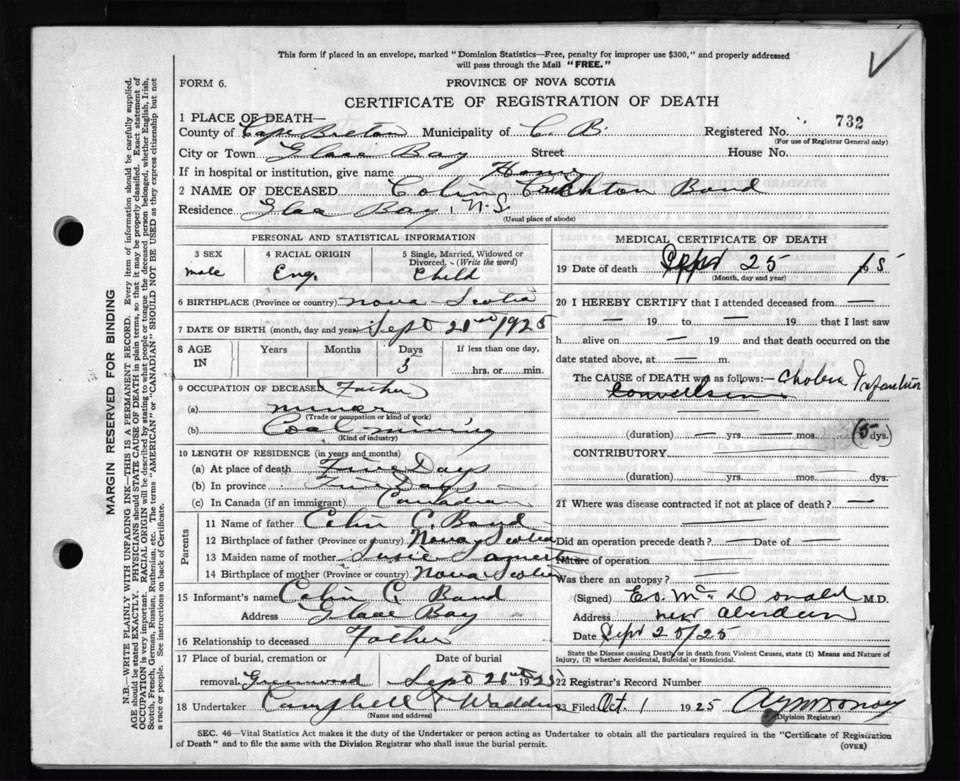 This form if placed in an envelope, marked "Dominion Statistics—Free, penalty for improper use $300," and properly addressed
will pass through the Mail "FREE."
FORM 6.
PROVINCE OF NOVA SCOTIA
CERTIFICATE OF REGISTRATION OF DEATH
1 PLACE OF DEATH—
County of Cape Breton Municipality of C. B. Registered No. 732
(For use of Registrar General only)
City or Town Glace Bay Street House No.
If in hospital or institution, give name Home
2 NAME OF DECEASED Colin Band
Residence Glace Bay, N.S.
(Usual place of abode)
PERSONAL AND STATISTICAL INFORMATION
3 SEX 4 RACIAL ORIGIN 5 Single, Married, Widowed or Divorced. (Write the word)
male Eng. Child
6 BIRTHPLACE (Province or country) Nova Scotia
7 DATE OF BIRTH (month, day and year) Sept 21st 1925
8 AGE IN Years Months Days 5 If less than one day, hrs. or min.
9 OCCUPATION OF DECEASED Father
(a) miner
(Trade or occupation or kind of work)
(b) Coal mining
(Kind of industry)
10 LENGTH OF RESIDENCE (in years and months)
(a) At place of death Five Days
(b) In province Five Days
(c) In Canada (if an immigrant) Canadian
Parents
11 Name of father Colin C. Band
12 Birthplace of father (Province or country) Nova Scotia
13 Maiden name of mother Susie
14 Birthplace of mother (Province or country) Nova Scotia
15 Informant's name Colin C. Band
Address Glace Bay
16 Relationship to deceased Father
17 Place of burial, cremation or removal. Greenwood Date of burial Sept 19 25
18 Undertaker Campbell & Wadden
(Name and address)
MEDICAL CERTIFICATE OF DEATH
19 Date of death Sept 25
(Month, day and year)
20 I HEREBY CERTIFY that I attended deceased from —
— 19 to — 19 that I last saw
h alive on — 19 and that death occurred on the
date stated above, at — m.
The CAUSE OF DEATH was as follows:— Cholera Infantum
Convulsions
(duration) — yrs. — mos. (5 dys.
CONTRIBUTORY
(duration) yrs. mos. dys.
21 Where was disease contracted if not at place of death? —
Did an operation precede death? — Date of —
Nature of operation
Was there an autopsy? —
(Signed) Ed. McDonald M.D.
Address New Aberdeen
Date Sept 25/25
State the Disease causing Death, or in death from Violent Causes, state (1) Means and Nature of
Injury, (2) whether Accidental, Suicidal or Homicidal.
22 Registrar's Record Number
23 Filed Oct 1 1925
(Division Registrar)
SEC. 46—Vital Statistics Act makes it the duty of the Undertaker or person acting as Undertaker to obtain all the particulars required in the "Certificate of Registration
of Death" and to file the same with the Division Registrar who shall issue the burial permit.
(OVER)
MARGIN RESERVED FOR BINDING
N.B.—WRITE PLAINLY WITH UNFADING INK—THIS IS A PERMANENT RECORD. Every item of information should be carefully supplied.
AGE should be stated EXACTLY. PHYSICIANS should STATE CAUSE OF DEATH in plain terms, so that it may be properly classified. Exact statement of
OCCUPATION is very important. RACIAL ORIGIN will be described by stating to what people or tongue the deceased person belonged, whether English, Irish,
Scotch, French, German, Russian, Ruthenian, etc. The terms "AMERICAN" or "CANADIAN" SHOULD NOT BE USED as they express citizenship but not
a race or people. See instructions on back of Certificate.